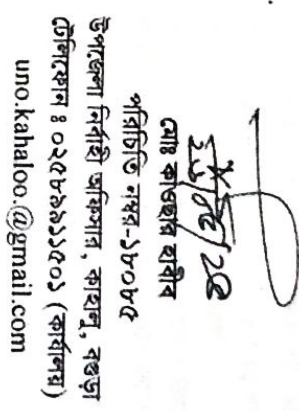 ২১/১২/২৫
মোঃ কাওছার হাবীব
পরিচিতি নম্বর-১৮০৮৫
উপজেলা নির্বাহী অফিসার, কাহালু, বগুড়া
টেলিফোন ঃ ০২৫৮৯৯১১৫০১ (কার্যালয়)
uno.kahaloo.@gmail.com